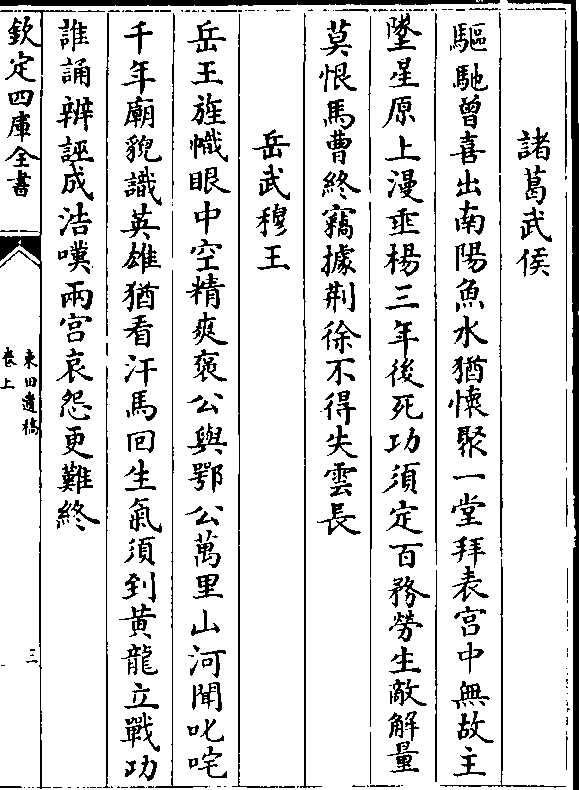 諸葛武侯
驅馳曾喜出南陽魚水猶懷聚一堂拜表宫中無故主
墜星原上漫垂楊三年後死功須定百務勞生敵解量
莫恨馬曹終竊據荆徐不得失雲長
岳武穆王
岳王旌幟眼中空精爽褒公與鄂公萬里山河聞叱咤
千年廟貌識英雄猶看汗馬回生氣須到黄龍立戰功
誰誦辨誣成浩嘆兩宫哀怨更難終
欽定四庫全書
東田遺稿
卷上
三